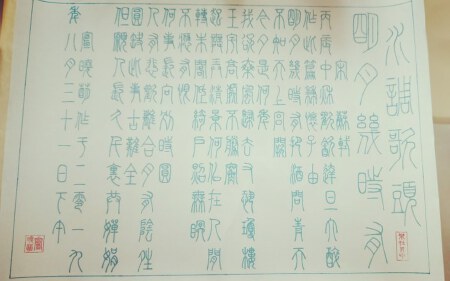 水調歌頭
明月幾時有
宋 蘇軾
丙辰中秋歡飲達旦大醉
作此篇兼懷子由
明月幾時有把酒問青天
不知天上宮闕
今夕是何年
我欲乘風歸去又恐瓊樓
玉宇高處不勝寒
起舞弄清影何似在人間
轉朱閣低綺戶照無眠
不應有恨
何事長向別時圓
人有悲歡離合月有陰晴
圓缺此事古難全
但願人長久千里共嬋娟
作于二零一九
年八月三十一日下午